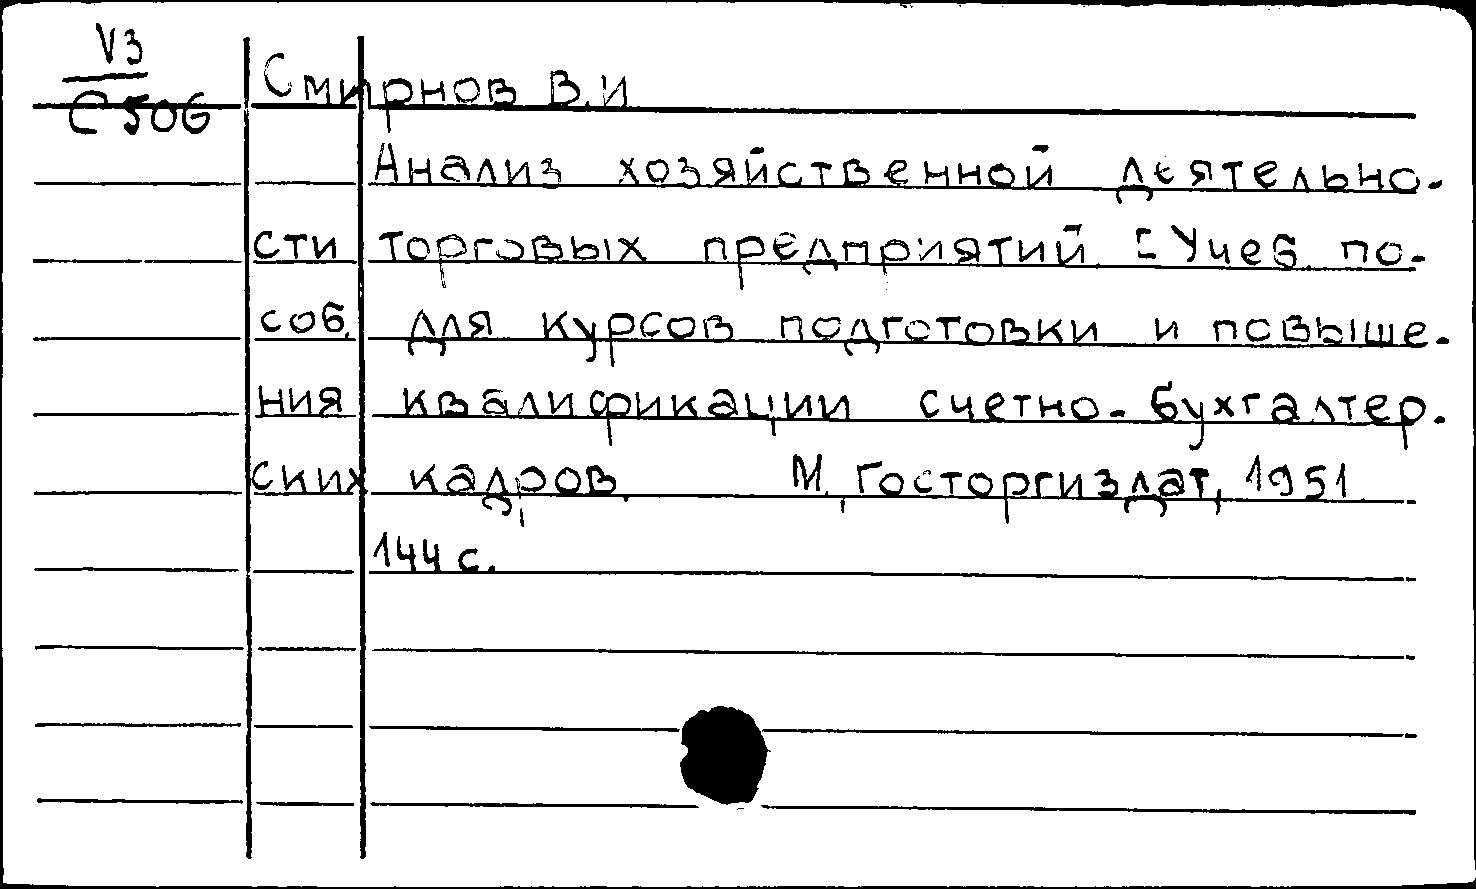 У3
С506
Смирнов В.И
Анализ хозяйственной деятельно-
сти торговых предприятий. [Учеб. по-
соб. для курсов подготовки и повыше-
ния квалификации счетно-бухгалтер-
ских кадров. М., Госторгиздат, 1951
144 с.